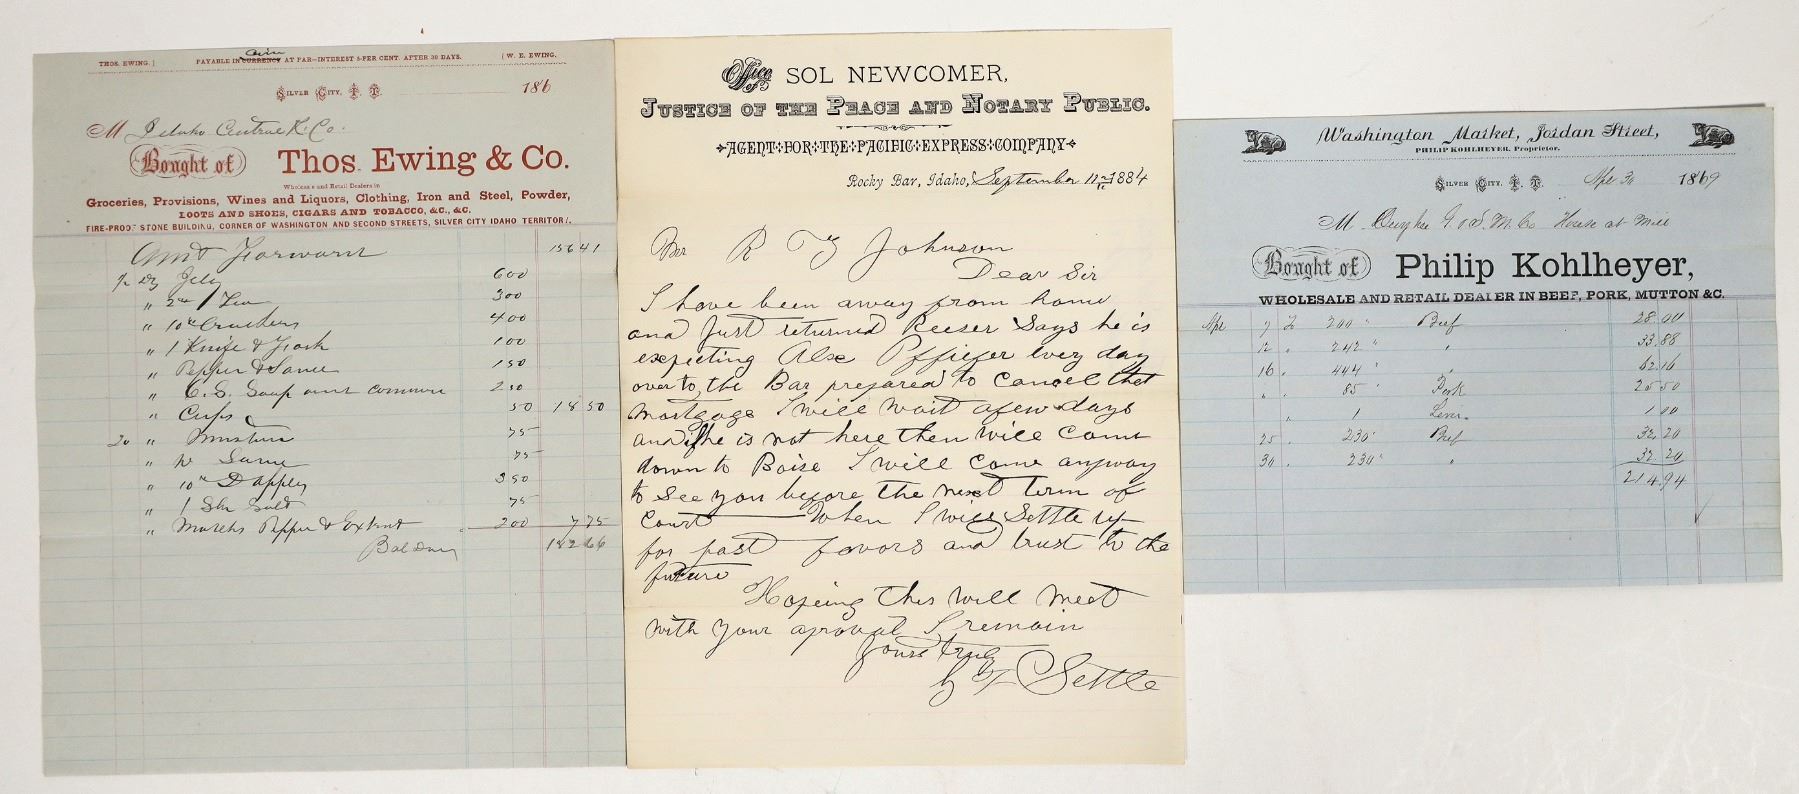 THOS. EWING. ] PAYABLE IN CURRENCY Coin AT PAR—INTEREST 5-PER CENT. AFTER 30 DAYS. [ W. E. EWING.
SILVER CITY, I. T. 186
M Idaho Central R. Co.
Bought of Thos. Ewing & Co.
Wholesale and Retail Dealers in
Groceries, Provisions, Wines and Liquors, Clothing, Iron and Steel, Powder,
BOOTS AND SHOES, CIGARS AND TOBACCO, &C., &C.
FIRE-PROOF STONE BUILDING, CORNER OF WASHINGTON AND SECOND STREETS, SILVER CITY IDAHO TERRITORY.
Amt Forward 156 41
1/2 Dz Jelly 6 00
" 3 00
" 10# Crackers 4 00
" 1 Knife & Fork 1 00
" Pepper & Sauce 1 50
" C. S. Soap and common 2 50
" Cups 50 18 50
20 " Mustard 75
" 75
" 10# D Apples 3 50
" 1 Salt 75
" Matches Pepper & Extract 2 00 7 75
182 66
Office of SOL NEWCOMER,
JUSTICE OF THE PEACE AND NOTARY PUBLIC.
AGENT FOR THE PACIFIC EXPRESS COMPANY
Rocky Bar, Idaho, September 11th 1884
Mr R Z Johnson
Dear Sir
I have been away from home
and Just returned Reeser Says he is
expecting Alx Pffiefer every day
over to the Bar prepared to Cancel that
Mortgage I will wait a few days
and if he is not here then will come
down to Boise I will come anyway
to See you before the next term of
Court When I will Settle up
for past favors and trust to the
future
Hopeing this will meet
with your aproval I remain
yours truly
Settle
Washington Market, Jordan Street,
PHILIP KOHLHEYER, Proprietor.
SILVER CITY, I. T. Apr 30 1869
M. Owyhee G. & S. M. Co House at Mill
Bought of Philip Kohlheyer,
WHOLESALE AND RETAIL DEALER IN BEEF, PORK, MUTTON &C.
Apr 7 200 " Beef 28.00
12 " 242 " " 33.88
16 " 444 " " 62.16
" " 85 " Pork 25.50
" 1 Liver 1.00
25 " 230 " Beef 32.20
30 " 230 " " 32.20
214.94